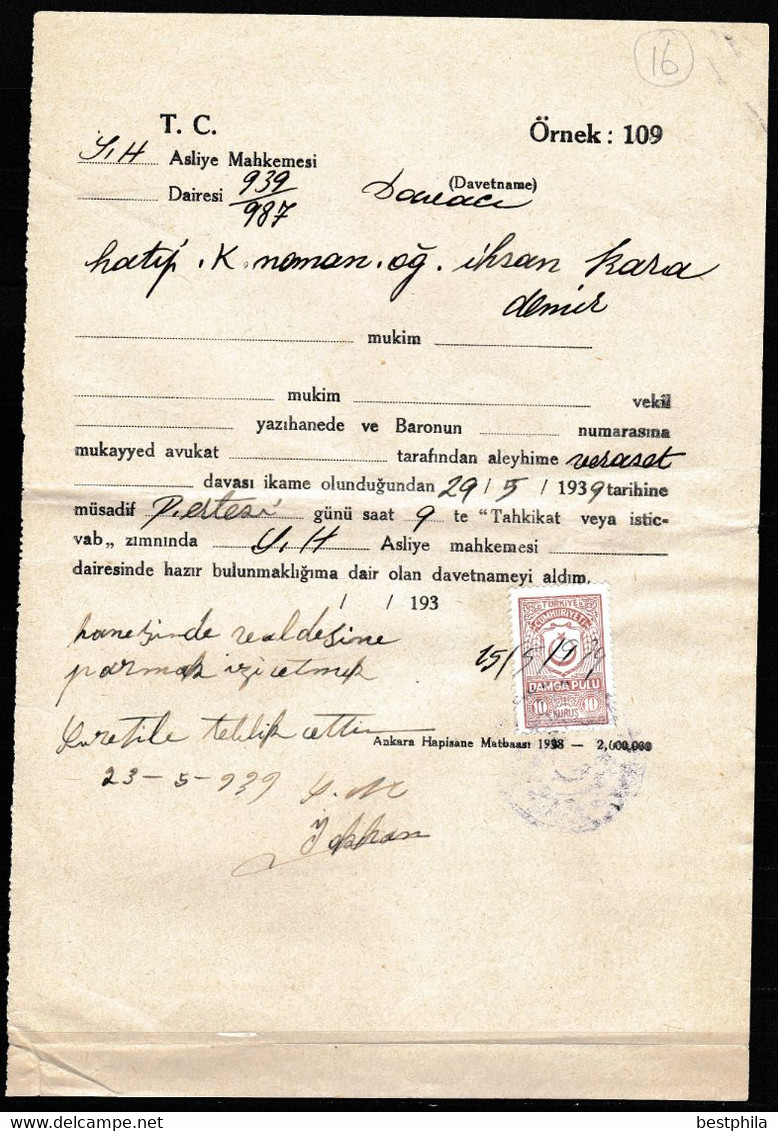 16
T. C.
Örnek : 109
Asliye Mahkemesi
(Davetname)
Dairesi 939
987
Davacı
hatip . K. noman . oğ . ihsan kara
demir
mukim
mukim vekil
yazıhanede ve Baronun numarasına
mukayyed avukat tarafından aleyhime veraset
davası ikame olunduğundan 29 / 5 / 1939 tarihine
müsadif P.ertesi günü saat 9 te “Tahkikat veya istic-
vab„ zımnında Asliye mahkemesi
dairesinde hazır bulunmaklığıma dair olan davetnameyi aldım.
/ / 193
TÜRKİYE
CUMHURİYETİ
DAMGA PULU
10 KURUŞ 10
hanesinde validesine
parmak izi etmek
suretile tebliğ ettim
Ankara Hapisane Matbaası 1938 — 2,000,000
23-5-939
bestphila